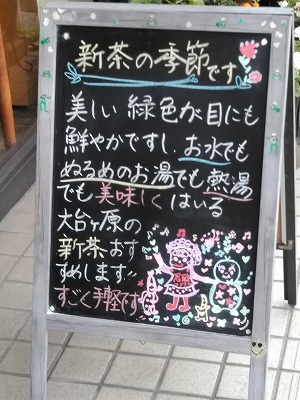 新茶の季節です
美しい緑色が目にも
鮮やかですし、お水でも
ぬるめのお湯でも熱湯
でも美味しくはいる
大台ヶ原の
新茶おす
すめします!!
すごく手軽です